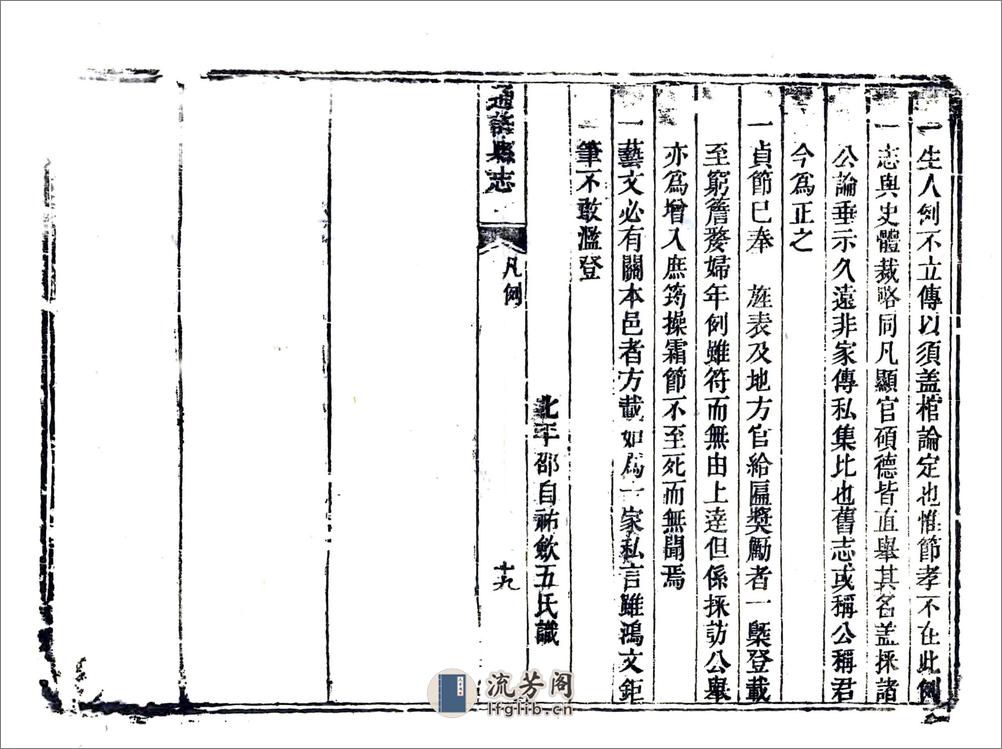 一生人例不立傳以須盖棺論定也惟節孝不在此例
一志與史體裁略同凡顯官碩德皆直舉其名盖採諸
公論垂示久遠非家傳私集比也舊志或稱公稱君
今為正之
一貞節已奉 旌表及地方官給匾獎勵者一槩登載
至窮簷嫠婦年例雖符而無由上達但係採訪公舉
亦為增入庶筠操霜節不至死而無聞焉
一藝文必有關本邑者方載如為一家私言雖鴻文鉅
筆不敢濫登
北平邵自祐歛五氏識
通許縣志
凡例
十九
流芳阁
lfglib.cn